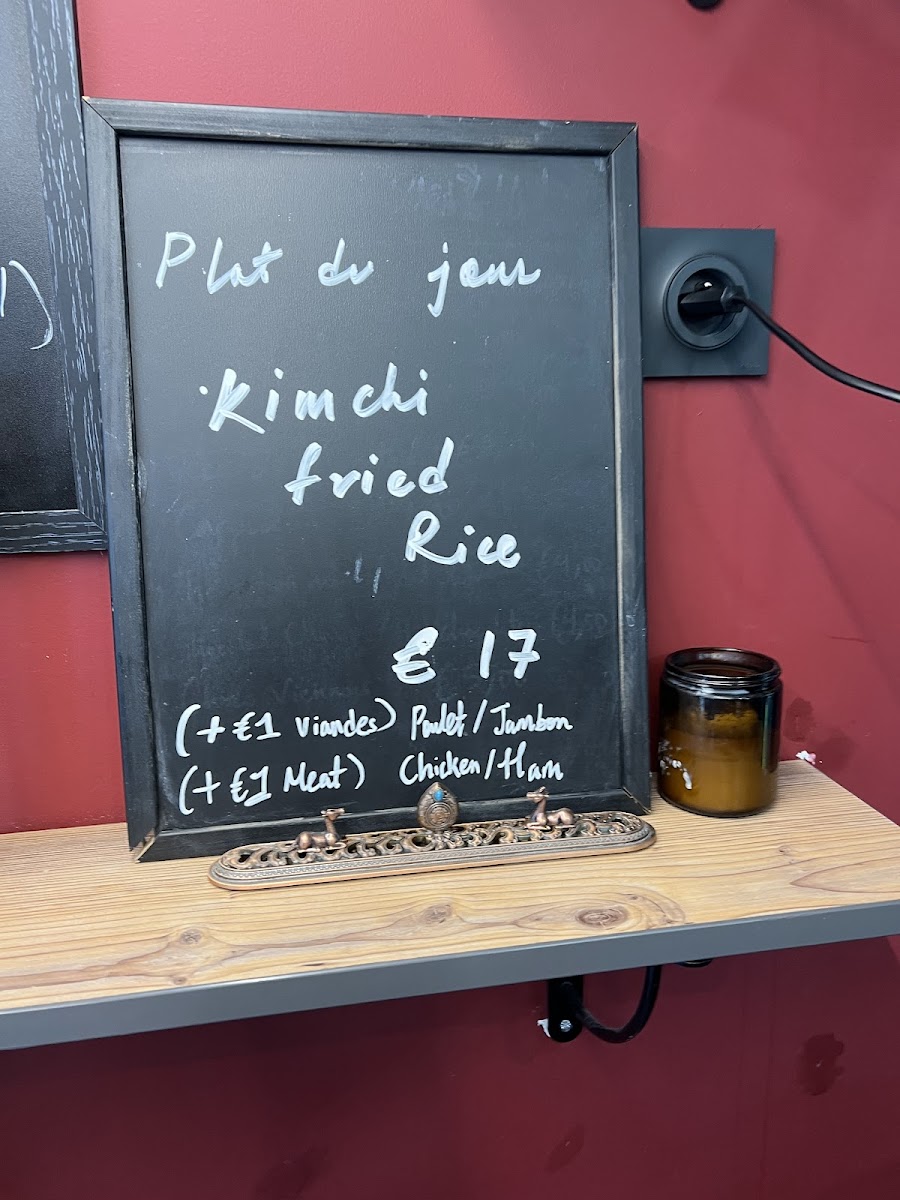 Plat du jour
Kimchi
fried
Rice
€ 17
(+ €1 viandes) Poulet/Jambon
(+ €1 Meat) Chicken/Ham